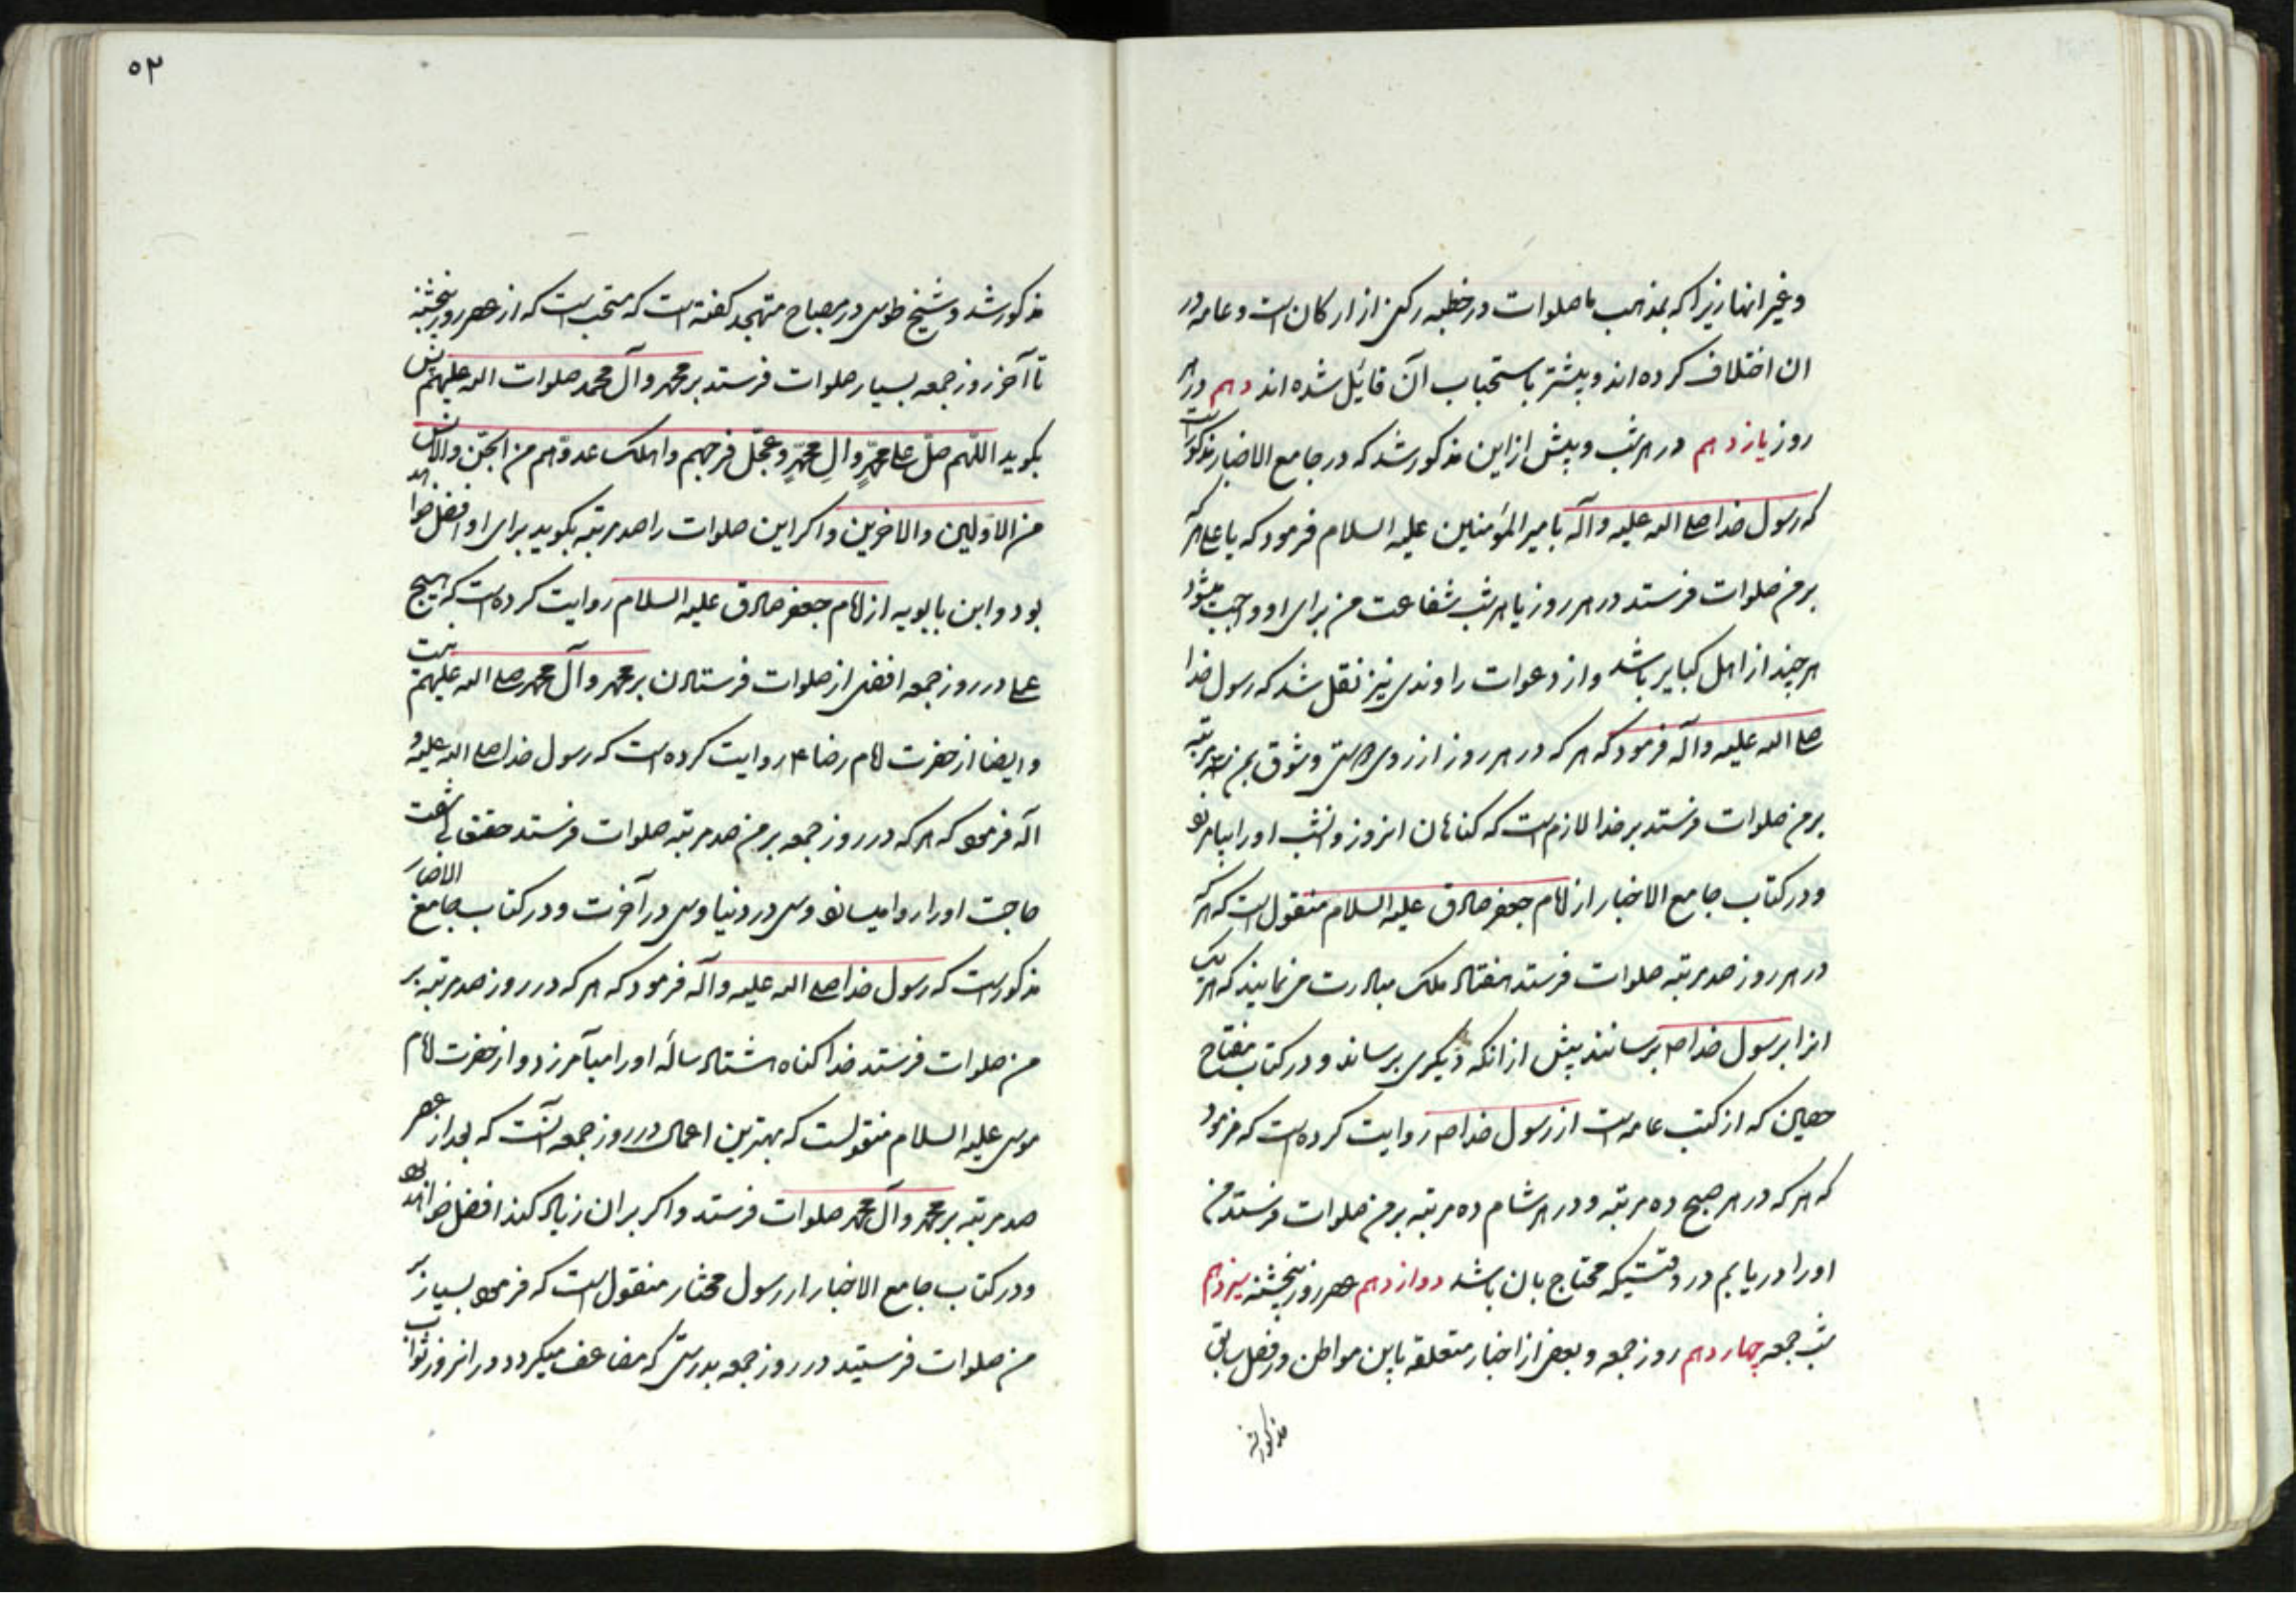 وغیر انها زیرا که بمذهب ما صلوات در خطبه رکنی از ارکان است و عامه در
ان اختلاف کرده اند و بیشتر باستحباب آن قائل شده اند دهم در هر
روز یازدهم در هر شب و پیش از این مذکور شد که در جامع الاخبار مذکور است
که رسول خدا صلی الله علیه وآله بامیر المؤمنین علیه السلام فرمود که یا علی هر که
بر من صلوات فرستد در هر روز یا هر شب شفاعت من برای او واجب میشود
هر چند از اهل کبایر باشد و از دعوات راوندی نیز نقل شد که رسول خدا
صلی الله علیه وآله فرمود که هر که در هر روز از روی دوستی و شوق بمن سه مرتبه
بر من صلوات فرستد بر خدا لازم است که کناهان انروز و انشب او را بیامرزد
و در کتاب جامع الاخبار از امام جعفر صادق علیه السلام منقول است که هر که
در هر روز صد مرتبه صلوات فرستد هفتاد ملک مبادرت می نمایند که هر یک
انرا برسول خدا ص برسانند پیش از انکه دیکری برساند و در کتاب مفتاح
حصین که از کتب عامه است از رسول خدا ص روایت کرده است که فرمود
که هر که در هر صبح ده مرتبه و در هر شام ده مرتبه بر من صلوات فرستد من
او را دریابم در وقتیکه محتاج بان باشد دوازدهم عصر روز پنجشنبه سیزدهم
شب جمعه چهاردهم روز جمعه و بعضی از اخبار متعلقه باین مواطن در فصل سابق
مذکور شد
۵۲
مذکور شد و شیخ طوسی در مصباح متهجد کفته است که مستحب است که از عصر روز پنجشنبه
تا آخر روز جمعه بسیار صلوات فرستد بر محمد وآل محمد صلوات الله علیهم پس
بکوید اللّهم صلّ علی محمّدٍ وآلِ محمّدٍ وعجّل فرجهم واهلک عدوّهم من الجنّ والانس
من الاوّلین والاخرین و اکر این صلوات را صد مرتبه بکوید برای او افضل خواهد
بود و ابن بابویه از امام جعفر صادق علیه السلام روایت کرده است که هیچ
عملی در روز جمعه افضل از صلوات فرستادن بر محمد وآل محمد صلی الله علیهم نیست
و ایضا از حضرت امام رضا ع روایت کرده است که رسول خدا صلی الله علیه و
آله فرمود که هر که در روز جمعه بر من صد مرتبه صلوات فرستد حقتعالی شصت
حاجت او را روا میسازد سی در دنیا و سی در آخرت و در کتاب جامع الاخبار
مذکور است که رسول خدا صلی الله علیه وآله فرمود که هر که در روز صد مرتبه بر
من صلوات فرستد خدا کناه هشتاد ساله او را میآمرزد و از حضرت امام
موسی علیه السلام منقولست که بهترین اعمال در روز جمعه آنست که بعد از عصر
صد مرتبه بر محمد وآل محمد صلوات فرستد و اکر بر ان زیاد کند افضل خواهد بود
و در کتاب جامع الاخبار از رسول مختار منقول است که فرمود بسیار بر
من صلوات فرستید در روز جمعه بدرستی که مضاعف میکردد در انروز ثواب